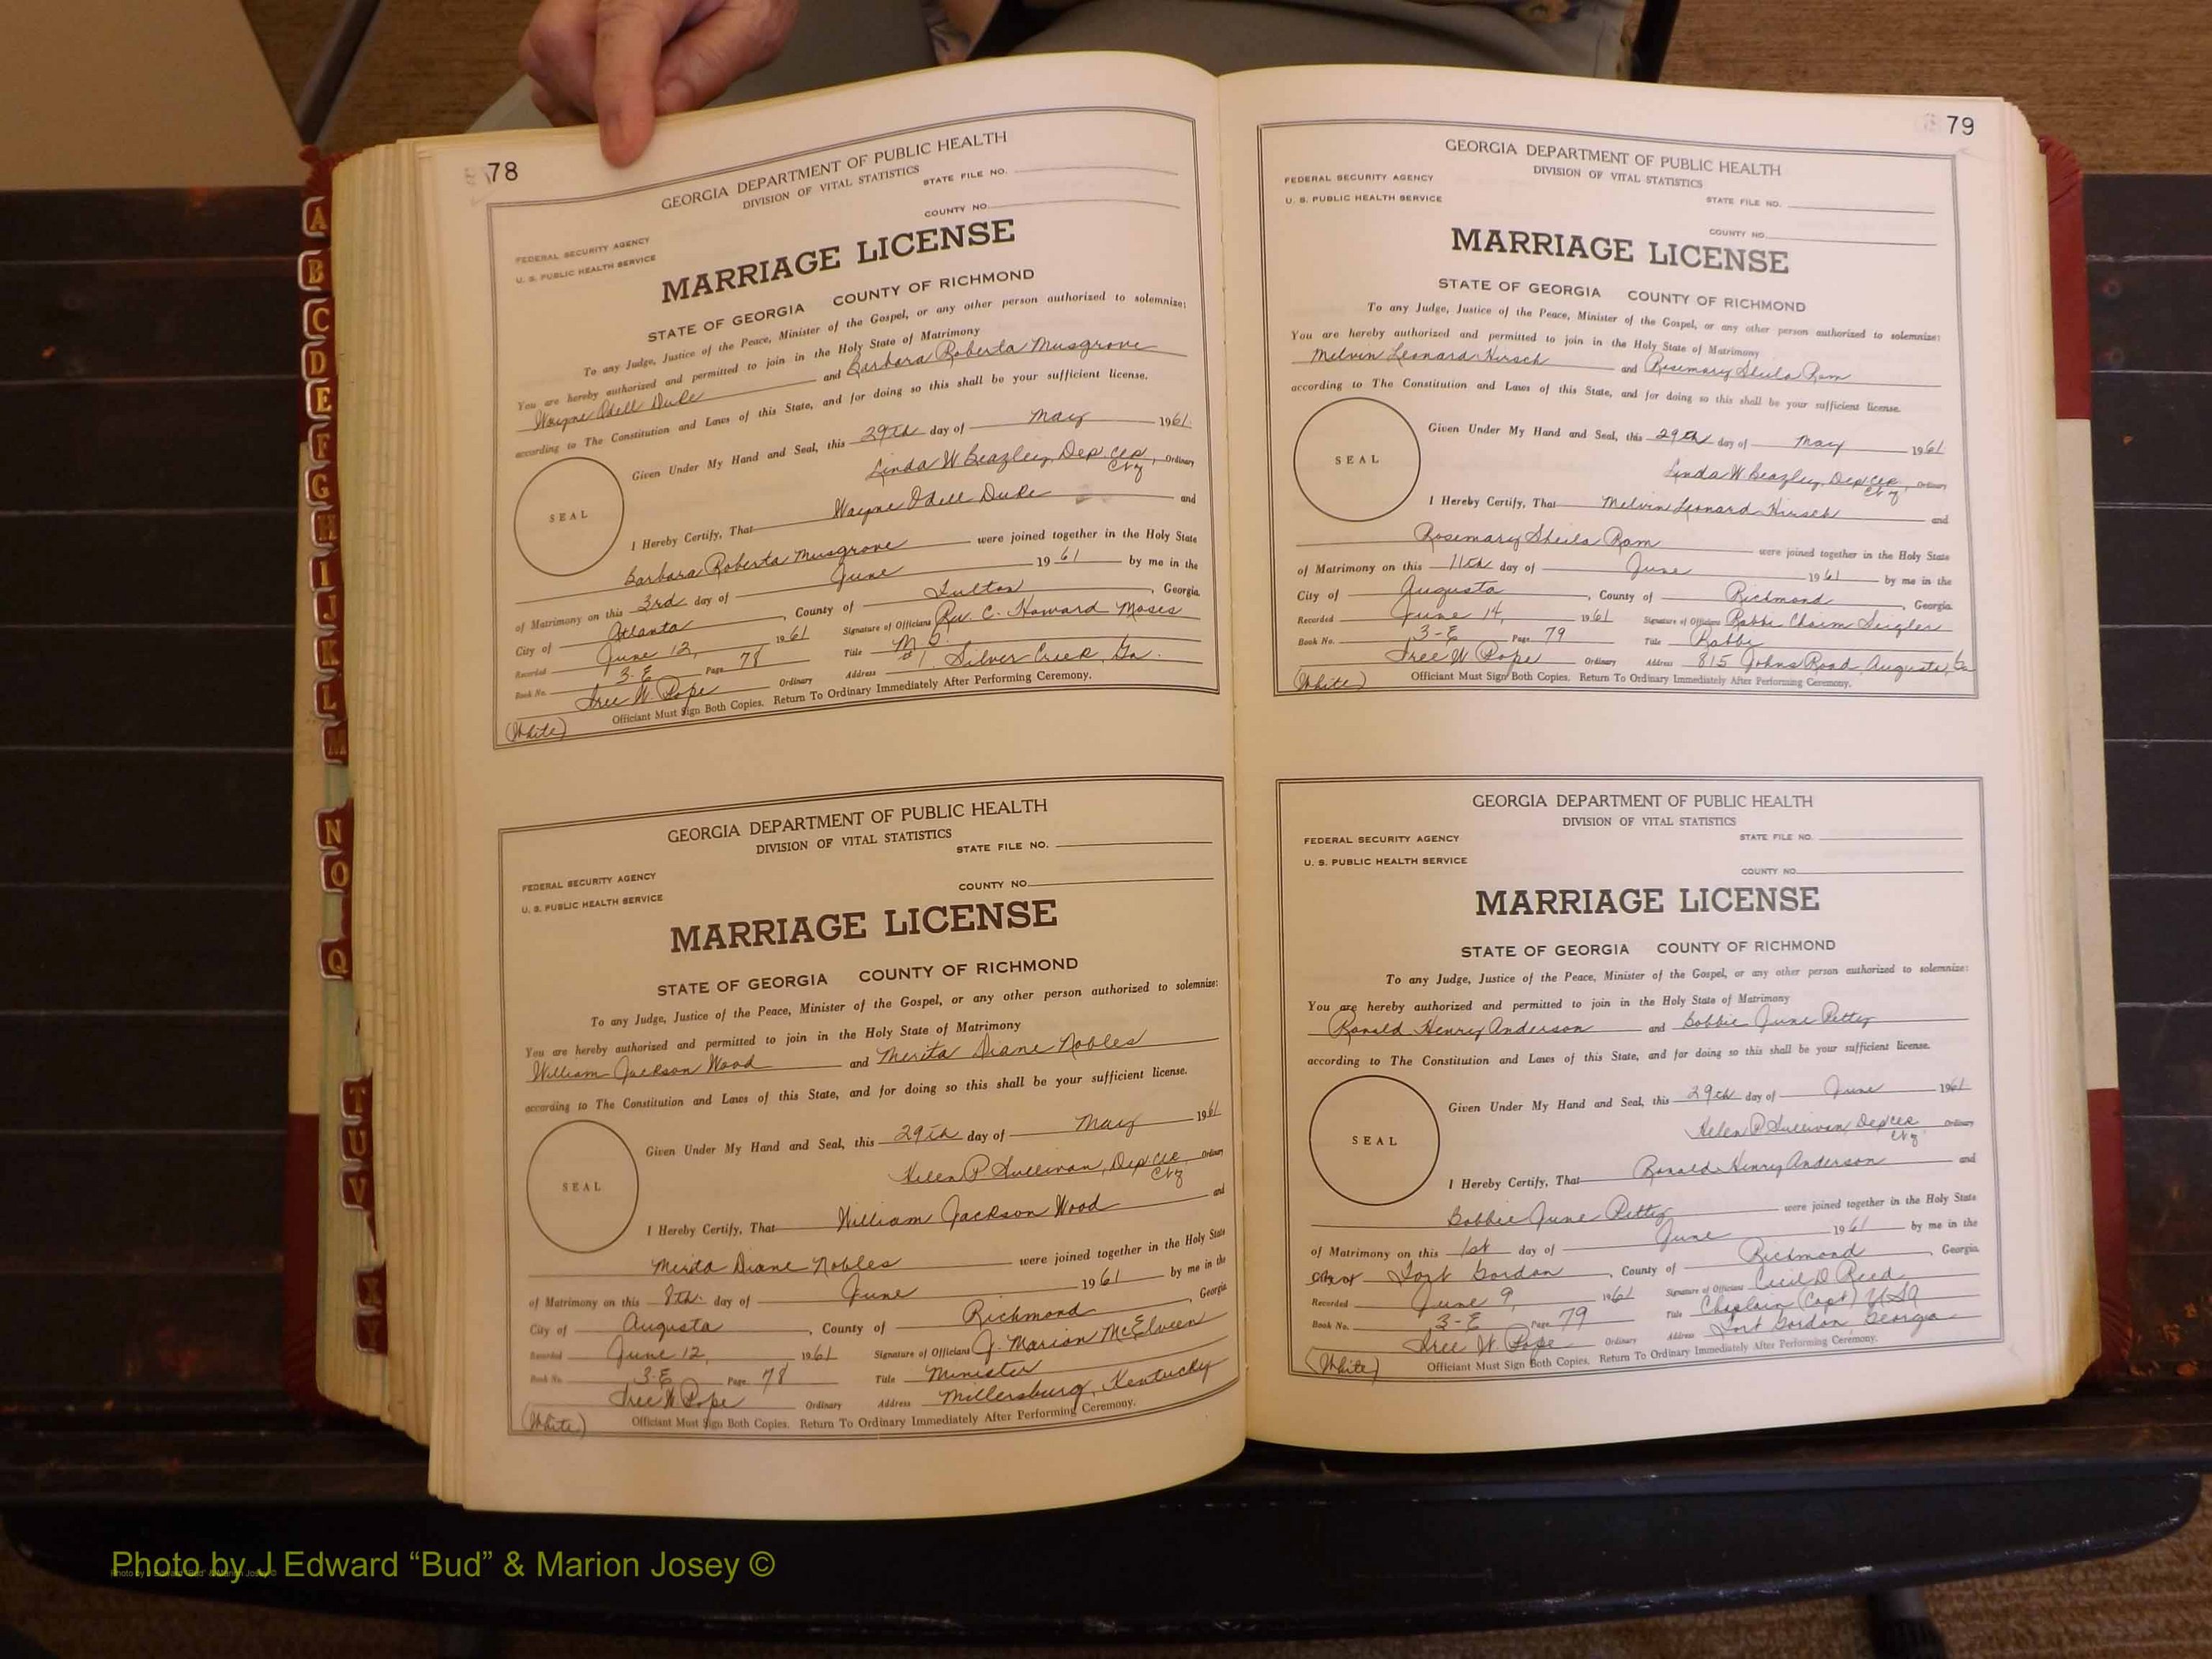 78
GEORGIA DEPARTMENT OF PUBLIC HEALTH
DIVISION OF VITAL STATISTICS
STATE FILE NO.
COUNTY NO.
FEDERAL SECURITY AGENCY
U. S. PUBLIC HEALTH SERVICE
MARRIAGE LICENSE
STATE OF GEORGIA COUNTY OF RICHMOND
To any Judge, Justice of the Peace, Minister of the Gospel, or any other person authorized to solemnize:
You are hereby authorized and permitted to join in the Holy State of Matrimony
Wayne Odell Duke and Barbara Roberta Musgrove
according to The Constitution and Laws of this State, and for doing so this shall be your sufficient license.
Given Under My Hand and Seal, this 29th day of May 1961
Linda W. Beazley, Dep. Clk., Ordinary
SEAL
I Hereby Certify, That Wayne Odell Duke and
Barbara Roberta Musgrove were joined together in the Holy State
of Matrimony on this 3rd day of June 1961 by me in the
City of Atlanta, County of Fulton, Georgia.
Recorded June 12, 1961 Signature of Officiant Rev. C. Howard Moses
Book No. 3-E Page 78 Title M.G.
Ordinary Address #1, Silver Creek, Ga.
Officiant Must Sign Both Copies. Return To Ordinary Immediately After Performing Ceremony.
(White)
GEORGIA DEPARTMENT OF PUBLIC HEALTH
DIVISION OF VITAL STATISTICS
STATE FILE NO.
FEDERAL SECURITY AGENCY
COUNTY NO.
U. S. PUBLIC HEALTH SERVICE
MARRIAGE LICENSE
STATE OF GEORGIA COUNTY OF RICHMOND
To any Judge, Justice of the Peace, Minister of the Gospel, or any other person authorized to solemnize:
You are hereby authorized and permitted to join in the Holy State of Matrimony
William Jackson Wood and Merita Diane Nobles
according to The Constitution and Laws of this State, and for doing so this shall be your sufficient license.
Given Under My Hand and Seal, this 29th day of May 1961
Helen P. Sullivan, Dep. Clk. Ordinary
SEAL
I Hereby Certify, That William Jackson Wood and
Merita Diane Nobles were joined together in the Holy State
of Matrimony on this 8th. day of June 1961 by me in the
City of Augusta, County of Richmond, Georgia
Recorded June 12, 1961 Signature of Officiant J. Marion McElveen
Book No. 3-E Page 78 Title Minister
Ordinary Address Millersburg, Kentucky
Officiant Must Sign Both Copies. Return To Ordinary Immediately After Performing Ceremony.
(White)
79
GEORGIA DEPARTMENT OF PUBLIC HEALTH
DIVISION OF VITAL STATISTICS
FEDERAL SECURITY AGENCY
U. S. PUBLIC HEALTH SERVICE
STATE FILE NO.
COUNTY NO.
MARRIAGE LICENSE
STATE OF GEORGIA COUNTY OF RICHMOND
To any Judge, Justice of the Peace, Minister of the Gospel, or any other person authorized to solemnize:
You are hereby authorized and permitted to join in the Holy State of Matrimony
Melvin Leonard Hirsch and Rosemary Sheila Ram
according to The Constitution and Laws of this State, and for doing so this shall be your sufficient license.
Given Under My Hand and Seal, this 29th day of May 1961
Linda W. Beazley, Dep. Clk., Ordinary
SEAL
I Hereby Certify, That Melvin Leonard Hirsch and
Rosemary Sheila Ram were joined together in the Holy State
of Matrimony on this 11th day of June 1961 by me in the
City of Augusta, County of Richmond, Georgia
Recorded June 14, 1961 Signature of Officiant Rabbi Chaim
Book No. 3-E Page 79 Title Rabbi
Ordinary Address 815 Johns Road, Augusta, Ga
Officiant Must Sign Both Copies. Return To Ordinary Immediately After Performing Ceremony.
(White)
GEORGIA DEPARTMENT OF PUBLIC HEALTH
DIVISION OF VITAL STATISTICS
FEDERAL SECURITY AGENCY
STATE FILE NO.
U. S. PUBLIC HEALTH SERVICE
COUNTY NO.
MARRIAGE LICENSE
STATE OF GEORGIA COUNTY OF RICHMOND
To any Judge, Justice of the Peace, Minister of the Gospel, or any other person authorized to solemnize:
You are hereby authorized and permitted to join in the Holy State of Matrimony
Ronald Henry Anderson and Bobbie June Petty
according to The Constitution and Laws of this State, and for doing so this shall be your sufficient license.
Given Under My Hand and Seal, this 29th day of June 1961
Helen P. Sullivan, Dep Clk Ordinary
SEAL
I Hereby Certify, That Ronald Henry Anderson and
Bobbie June Petty were joined together in the Holy State
of Matrimony on this 1st day of June 1961 by me in the
City of Fort Gordon, County of Richmond, Georgia
Recorded June 9, 1961 Signature of Officiant Cecil D. Reed
Book No. 3-E Page 79 Title Chaplain (Capt) USA
Ordinary Address Fort Gordon, Georgia
Officiant Must Sign Both Copies. Return To Ordinary Immediately After Performing Ceremony.
(White)
A
B
C
D
E
F
G
H
I
J
K
L
M
N
O
Q
T
U
V
X
Y
Photo by J Edward “Bud” & Marion Josey ©